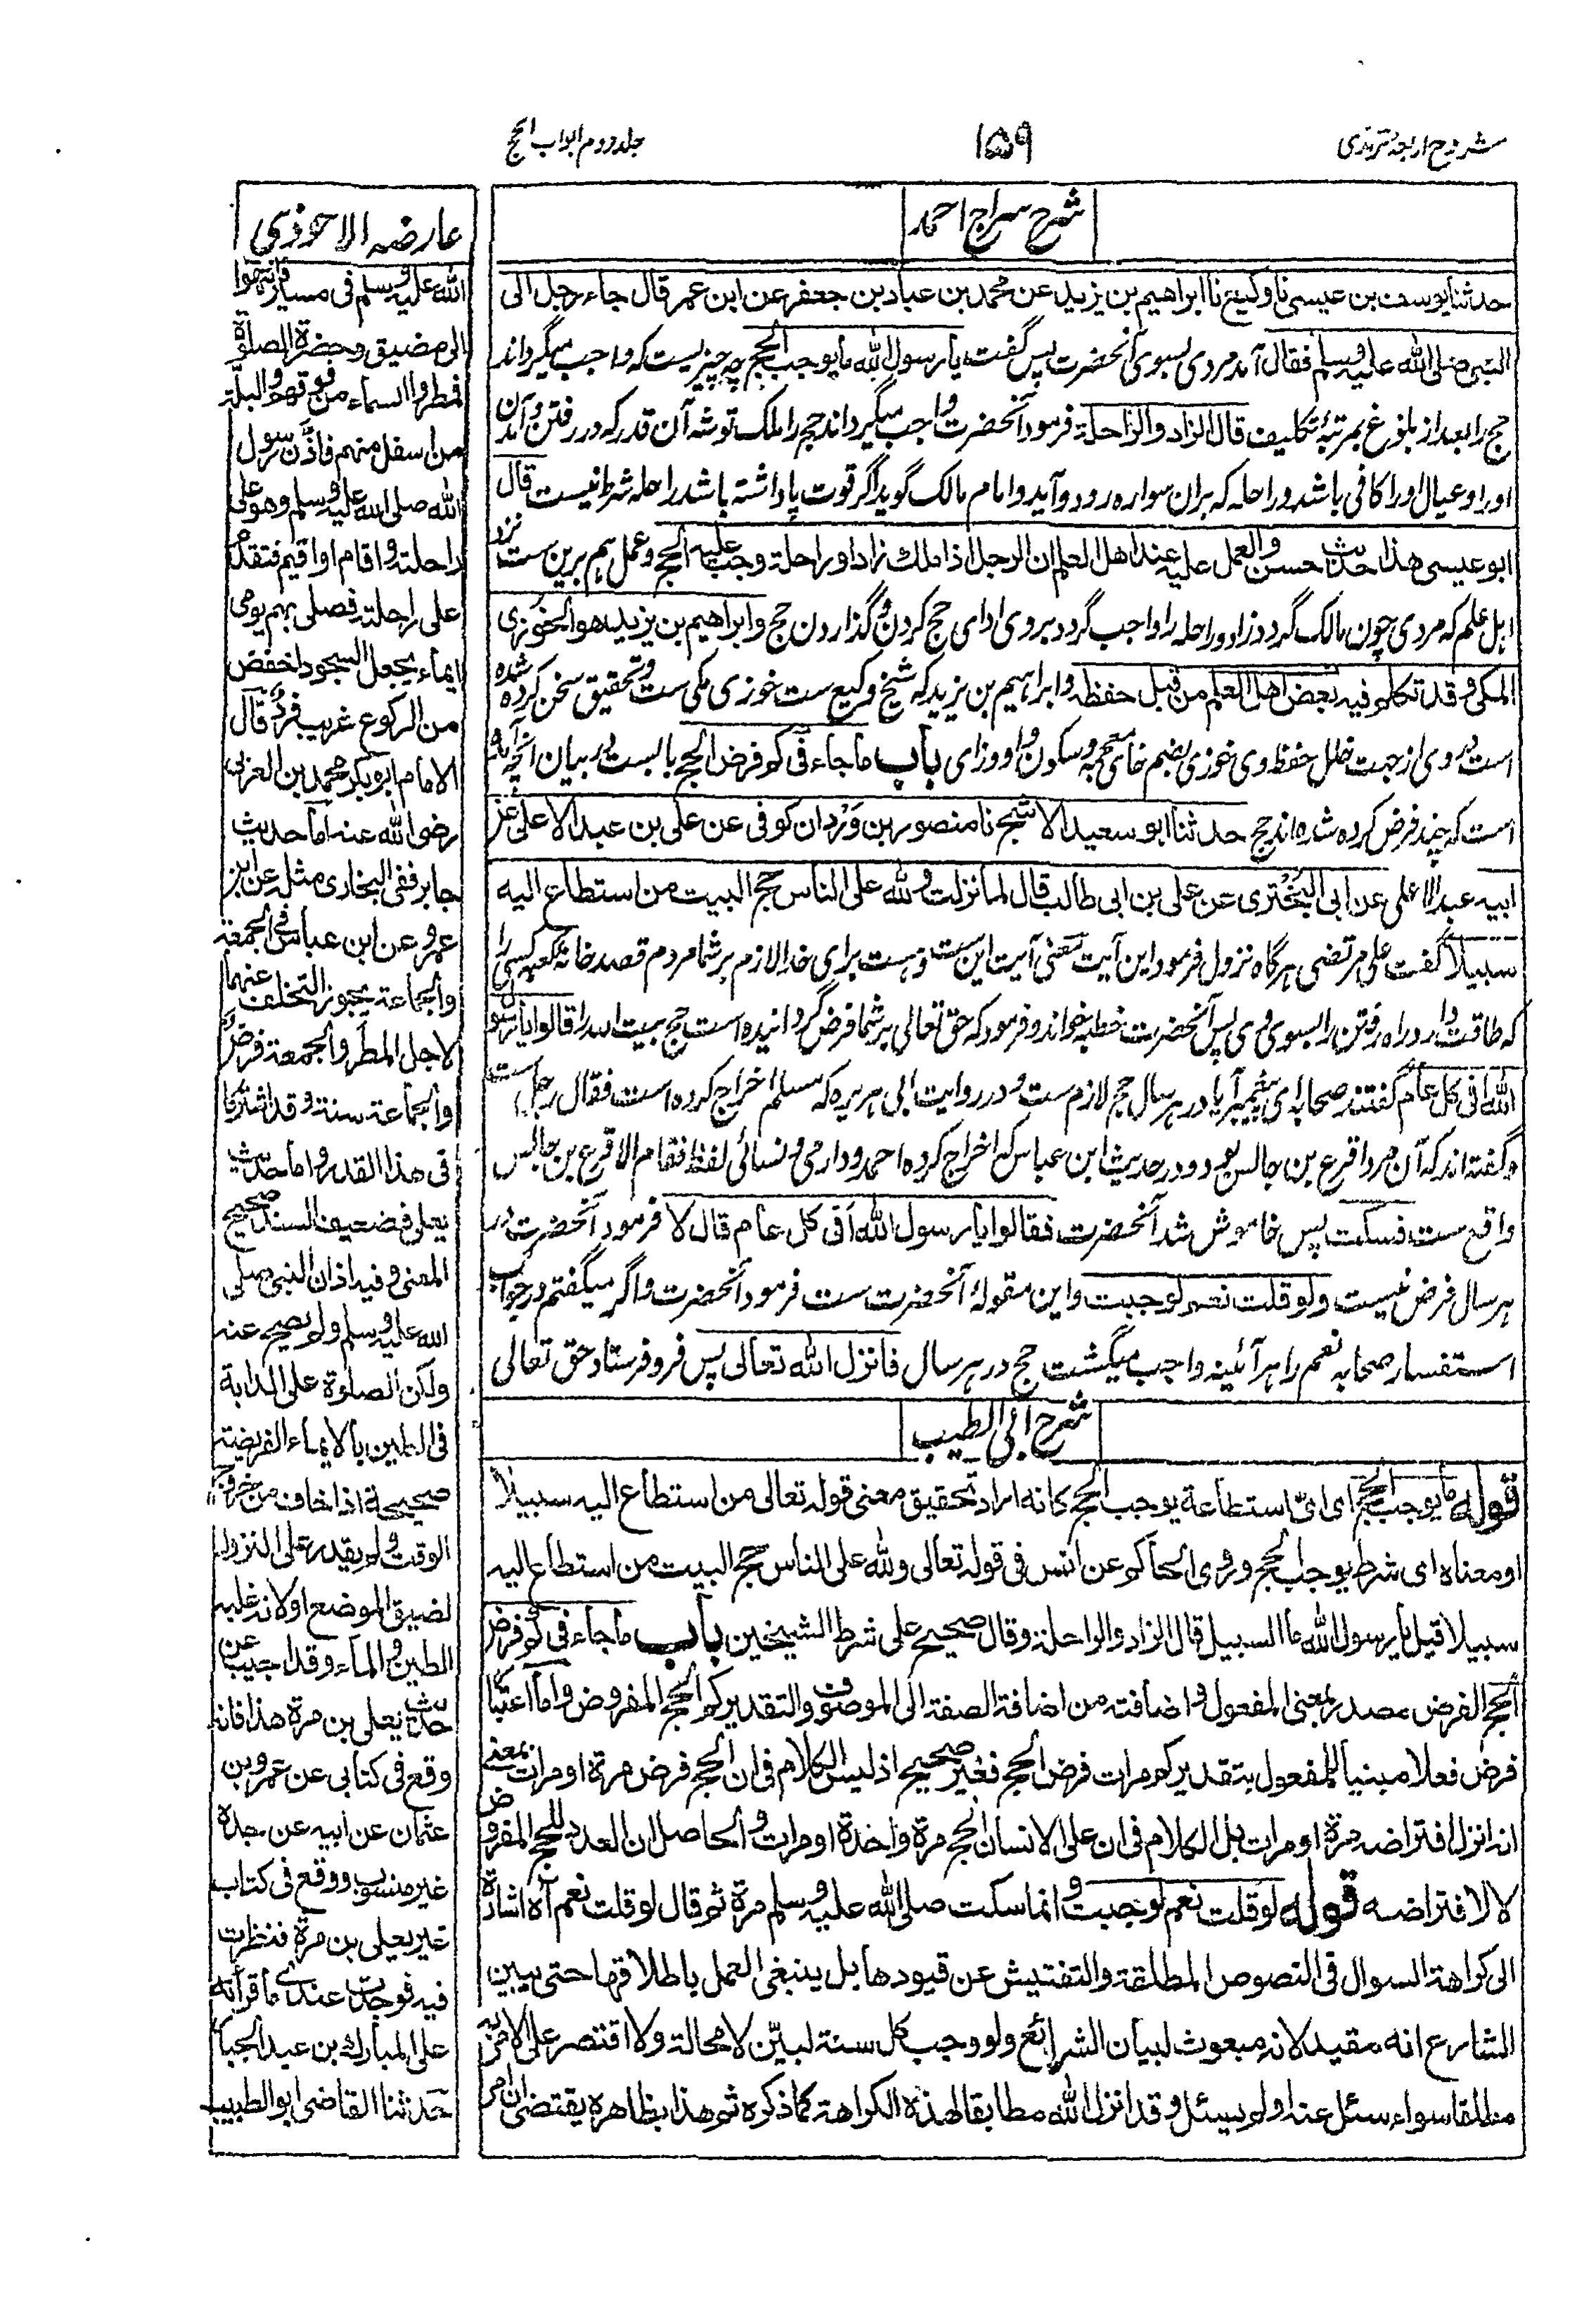 شروح اربعۂ ترمذی
۱۵۹
جلد دوم ابواب الحج
شرح سراج احمد
حدثنا یوسف بن عیسی نا وکیع نا ابراهیم بن یزید عن محمد بن عباد بن جعفر عن ابن عمر قال جاء رجل الی
النبی صلی الله علیه وسلم فقال آمد مردی بسوی آنحضرت پس گفت یا رسول الله ما یوجب الحج چه چیز یست که واجب میگرداند
حج را بعد از بلوغ بمرتبۂ تکلیف قال الزاد والراحلة فرمود آنحضرت واجب میگرداند حج را ملک توشه آن قدر که در رفتن و آمدن
او را و عیال او را کافی باشد و راحله که بران سواره رود و آید و امام مالک گوید اگر قوت پا داشته باشد راحله شرط نیست قال
ابو عیسی هذا حدیث حسن والعمل علیه عند اهل العلم ان الرجل اذا ملک زادا وراحلة وجب علیه الحج و عمل هم برین ست نزد
اهل علم که مردی چون مالک گردد زاد و راحله را واجب گردد بروی ادای حج کردن و گذاردن حج وابراهیم بن یزید هو الخوزی
المکی وقد تکلم فیه بعض اهل العلم من قبل حفظه وابراهیم بن یزید که شیخ وکیع ست خوزی مکی ست و تحقیق سخن کرده شده
است در وی از جهت خلل حفظ وی خوزی بضم خای معجمه و سکون واو و زای باب ما جاء فی کم فرض الحج بابست در بیان آنچه آمده
است که چند فرض کرده شده اند حج حدثنا ابو سعید الاشج نا منصور بن وردان کوفی عن علی بن عبد الاعلی عن
ابیه عبد الاعلی عن ابی البختری عن علی بن ابی طالب قال لما نزلت ولله علی الناس حج البیت من استطاع الیه
سبیلا گفت علی مرتضی هرگاه نزول فرمود این آیت معنی آیت این ست و هست برای خدا لازم بر شما مردم قصد خانۂ کعبه کسی را
که طاقت دارد راه رفتن را بسوی وی پس آنحضرت خطبه خواند و فرمود که حق تعالی بر شما فرض گردانیده است حج بیت الله را قالوا یا رسول
الله افی کل عام گفتند صحابه ای پیغمبر آیا در هر سال حج لازم ست و در روایت ابی هریره که مسلم اخراج کرده است فقال رجل ست
و گفته اند که آن مرد اقرع بن حابس بود و در حدیث ابن عباس که اخراج کرده احمد و دارمی و نسائی لفظ فقام الاقرع بن حابس
واقع ست فسکت پس خاموش شد آنحضرت فقالوا یا رسول الله افی کل عام قال لا فرمود آنحضرت در
هر سال فرض نیست ولو قلت نعم لوجبت و این مقولۂ آنحضرت ست فرمود آنحضرت و اگر میگفتم در جواب
استفسار صحابه نعم را هر آئینه واجب میگشت حج در هر سال فانزل الله تعالی پس فرو فرستاد حق تعالی
شرح ابی الطیب
قوله ما یوجب الحج ای ای استطاعة یوجب الحج کانه اراد تحقیق معنی قوله تعالی من استطاع الیه سبیلا
او معناه ای شرط یوجب الحج وروی الحاکم عن انس فی قوله تعالی ولله علی الناس حج البیت من استطاع الیه
سبیلا قیل یا رسول الله ما السبیل قال الزاد والراحلة وقال صحیح علی شرط الشیخین باب ما جاء فی کم فرض
الحج الفرض مصدر بمعنی المفعول واضافته من اضافة الصفة الی الموصوف والتقدیر کم الحج المفروض واما اعتبار
فرض فعلا مبنیا للمفعول بتقدیر کم مرات فرض الحج فغیر صحیح اذ لیس الکلام فی ان الحج فرض مرة او مرات بمعنی
انه انزل افتراضه مرة او مرات بل الکلام فی ان علی الانسان الحج مرة واحدة او مرات والحاصل ان العدد للحج المفروض
لا لافتراضه قوله لو قلت نعم لوجبت وانما سکت صلی الله علیه وسلم مرة ثم قال لو قلت نعم اه اشارة
الی کراهة السوال فی النصوص المطلقة والتفتیش عن قیودها بل ینبغی العمل باطلاقها حتی یبین
الشارع انه مقید لانه مبعوث لبیان الشرائع ولو وجب کل سنة لبین لا محالة ولا اقتصر علی الامر به
مطلقا سواء سئل عنه او لم یسئل وقد انزل الله مطابقا لهذه الکراهة کما ذکره ثم هذا بظاهره یقتضی ان امر
عارضه الاحوذی
الله علیه وسلم فی مسیر فانتهوا
الی مضیق وحضرة الصلوة
فمطروا السماء من فوقهم والبلة
من اسفل منهم فاذن رسول
الله صلی الله علیه وسلم وهو علی
راحلته واقام او اقیم فتقدم
علی راحلته فصلی بهم یومی
ایماء یجعل السجود اخفض
من الرکوع غریب فرد قال
الامام ابو بکر محمد بن العربی
رضی الله عنه اما حدیث
جابر ففی البخاری مثله عن ابن
عمر وعن ابن عباس فی الجمعة
والجماعة یجوز التخلف عنهما
لاجل المطر والجمعة فرض
والجماعة سنة وقد اشترکا
فی هذا القدر واما حدیث
یعلی فضعیف السند صحیح
المعنی وفیه اذان النبی صلی
الله علیه وسلم ولم یصح عنه
ولکن الصلوة علی الدابة
فی الطین بالایماء الفریضة
صحیحة اذا خاف من خروج
الوقت ولم یقدر علی النزول
لضیق الموضع او لانه غلبه
الطین والماء وقد اجیب عن
حدیث یعلی بن مرة هذا فانه
وقع فی کتابی عن عمرو بن
عثمان عن ابیه عن جده
غیر منسوب ووقع فی کتاب
غیر یعلی بن مرة فنظرت
فیه فوجدت عندی ما قرأته
علی المبارک بن عبد الجبار
حدثنا القاضی ابو الطیب